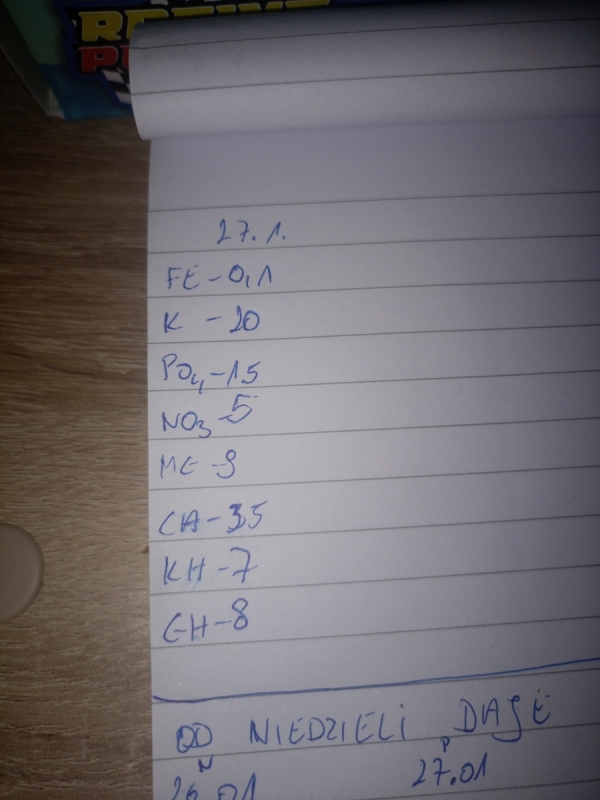 27.1.
FE-0,1
K - 20
PO4-1.5
NO3-5
MG-9
CA-35
KH-7
GH-8
OD NIEDZIELI DAJE
N P
26.01 27.01